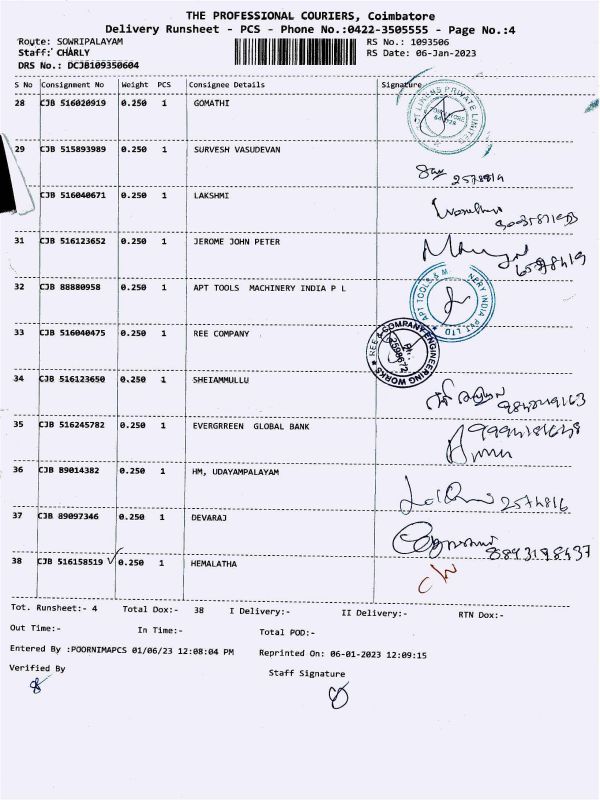 THE PROFESSIONAL COURIERS, Coimbatore
Delivery Runsheet - PCS - Phone No.:0422-3505555 - Page No.:4
Route: SOWRIPALAYAM RS No.: 1093506
Staff: CHARLY RS Date: 06-Jan-2023
DRS No.: DCJB109350604
S No Consignment No Weight PCS Consignee Details Signature
28 CJB 516020919 0.250 1 GOMATHI
29 CJB 515893989 0.250 1 SURVESH VASUDEVAN
CJB 516040671 0.250 1 LAKSHMI
31 CJB 516123652 0.250 1 JEROME JOHN PETER
32 CJB 88880958 0.250 1 APT TOOLS MACHINERY INDIA P L
APT TOOLS & M NERY INDIA PVT. LTD
33 CJB 516040475 0.250 1 REE COMPANY
REE & COMPANY ENGINEERING WORKS
34 CJB 516123650 0.250 1 SHEIAMMULLU
35 CJB 516245782 0.250 1 EVERGRREEN GLOBAL BANK
36 CJB B9014382 0.250 1 HM, UDAYAMPALAYAM
2574816
37 CJB 89097346 0.250 1 DEVARAJ
38 CJB 516158519 0.250 1 HEMALATHA
Tot. Runsheet:- 4 Total Dox:- 38 I Delivery:- II Delivery:- RTN Dox:-
Out Time:- In Time:- Total POD:-
Entered By :POORNIMAPCS 01/06/23 12:08:04 PM Reprinted On: 06-01-2023 12:09:15
Verified By Staff Signature